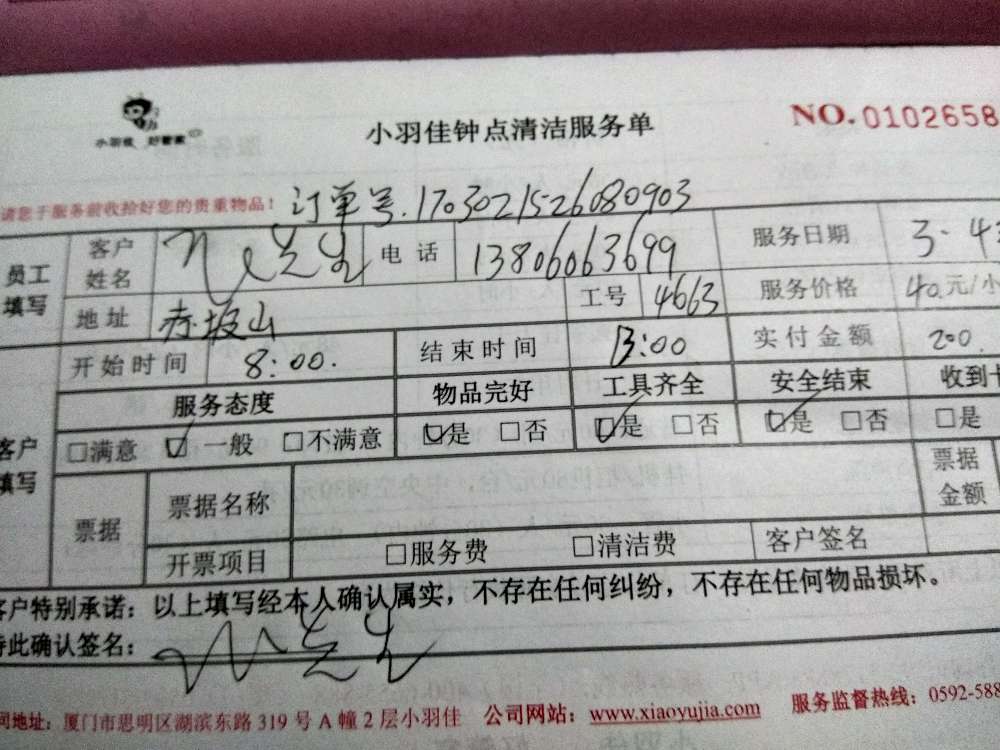 小羽佳 好管家
小羽佳钟点清洁服务单
NO.0102658
请您于服务前收拾好您的贵重物品！ 订单号.170302152608090​3
员工填写 客户姓名 先生 电话 13806063699 服务日期 3.4
地址 赤坡山 工号 4663 服务价格 40.元/小
开始时间 8:00. 结束时间 13:00 实付金额 200.
服务态度 物品完好 工具齐全 安全结束 收到卡
客户填写 □满意 ☑一般 □不满意 ☑是 □否 ☑是 □否 ☑是 □否 □是
票据 票据名称 票据金额
开票项目 □服务费 □清洁费 客户签名
客户特别承诺：以上填写经本人确认属实，不存在任何纠纷，不存在任何物品损坏。
特此确认签名： 先生
司地址：厦门市思明区湖滨东路319号A幢2层小羽佳 公司网站：www.xiaoyujia.com 服务监督热线：0592-588